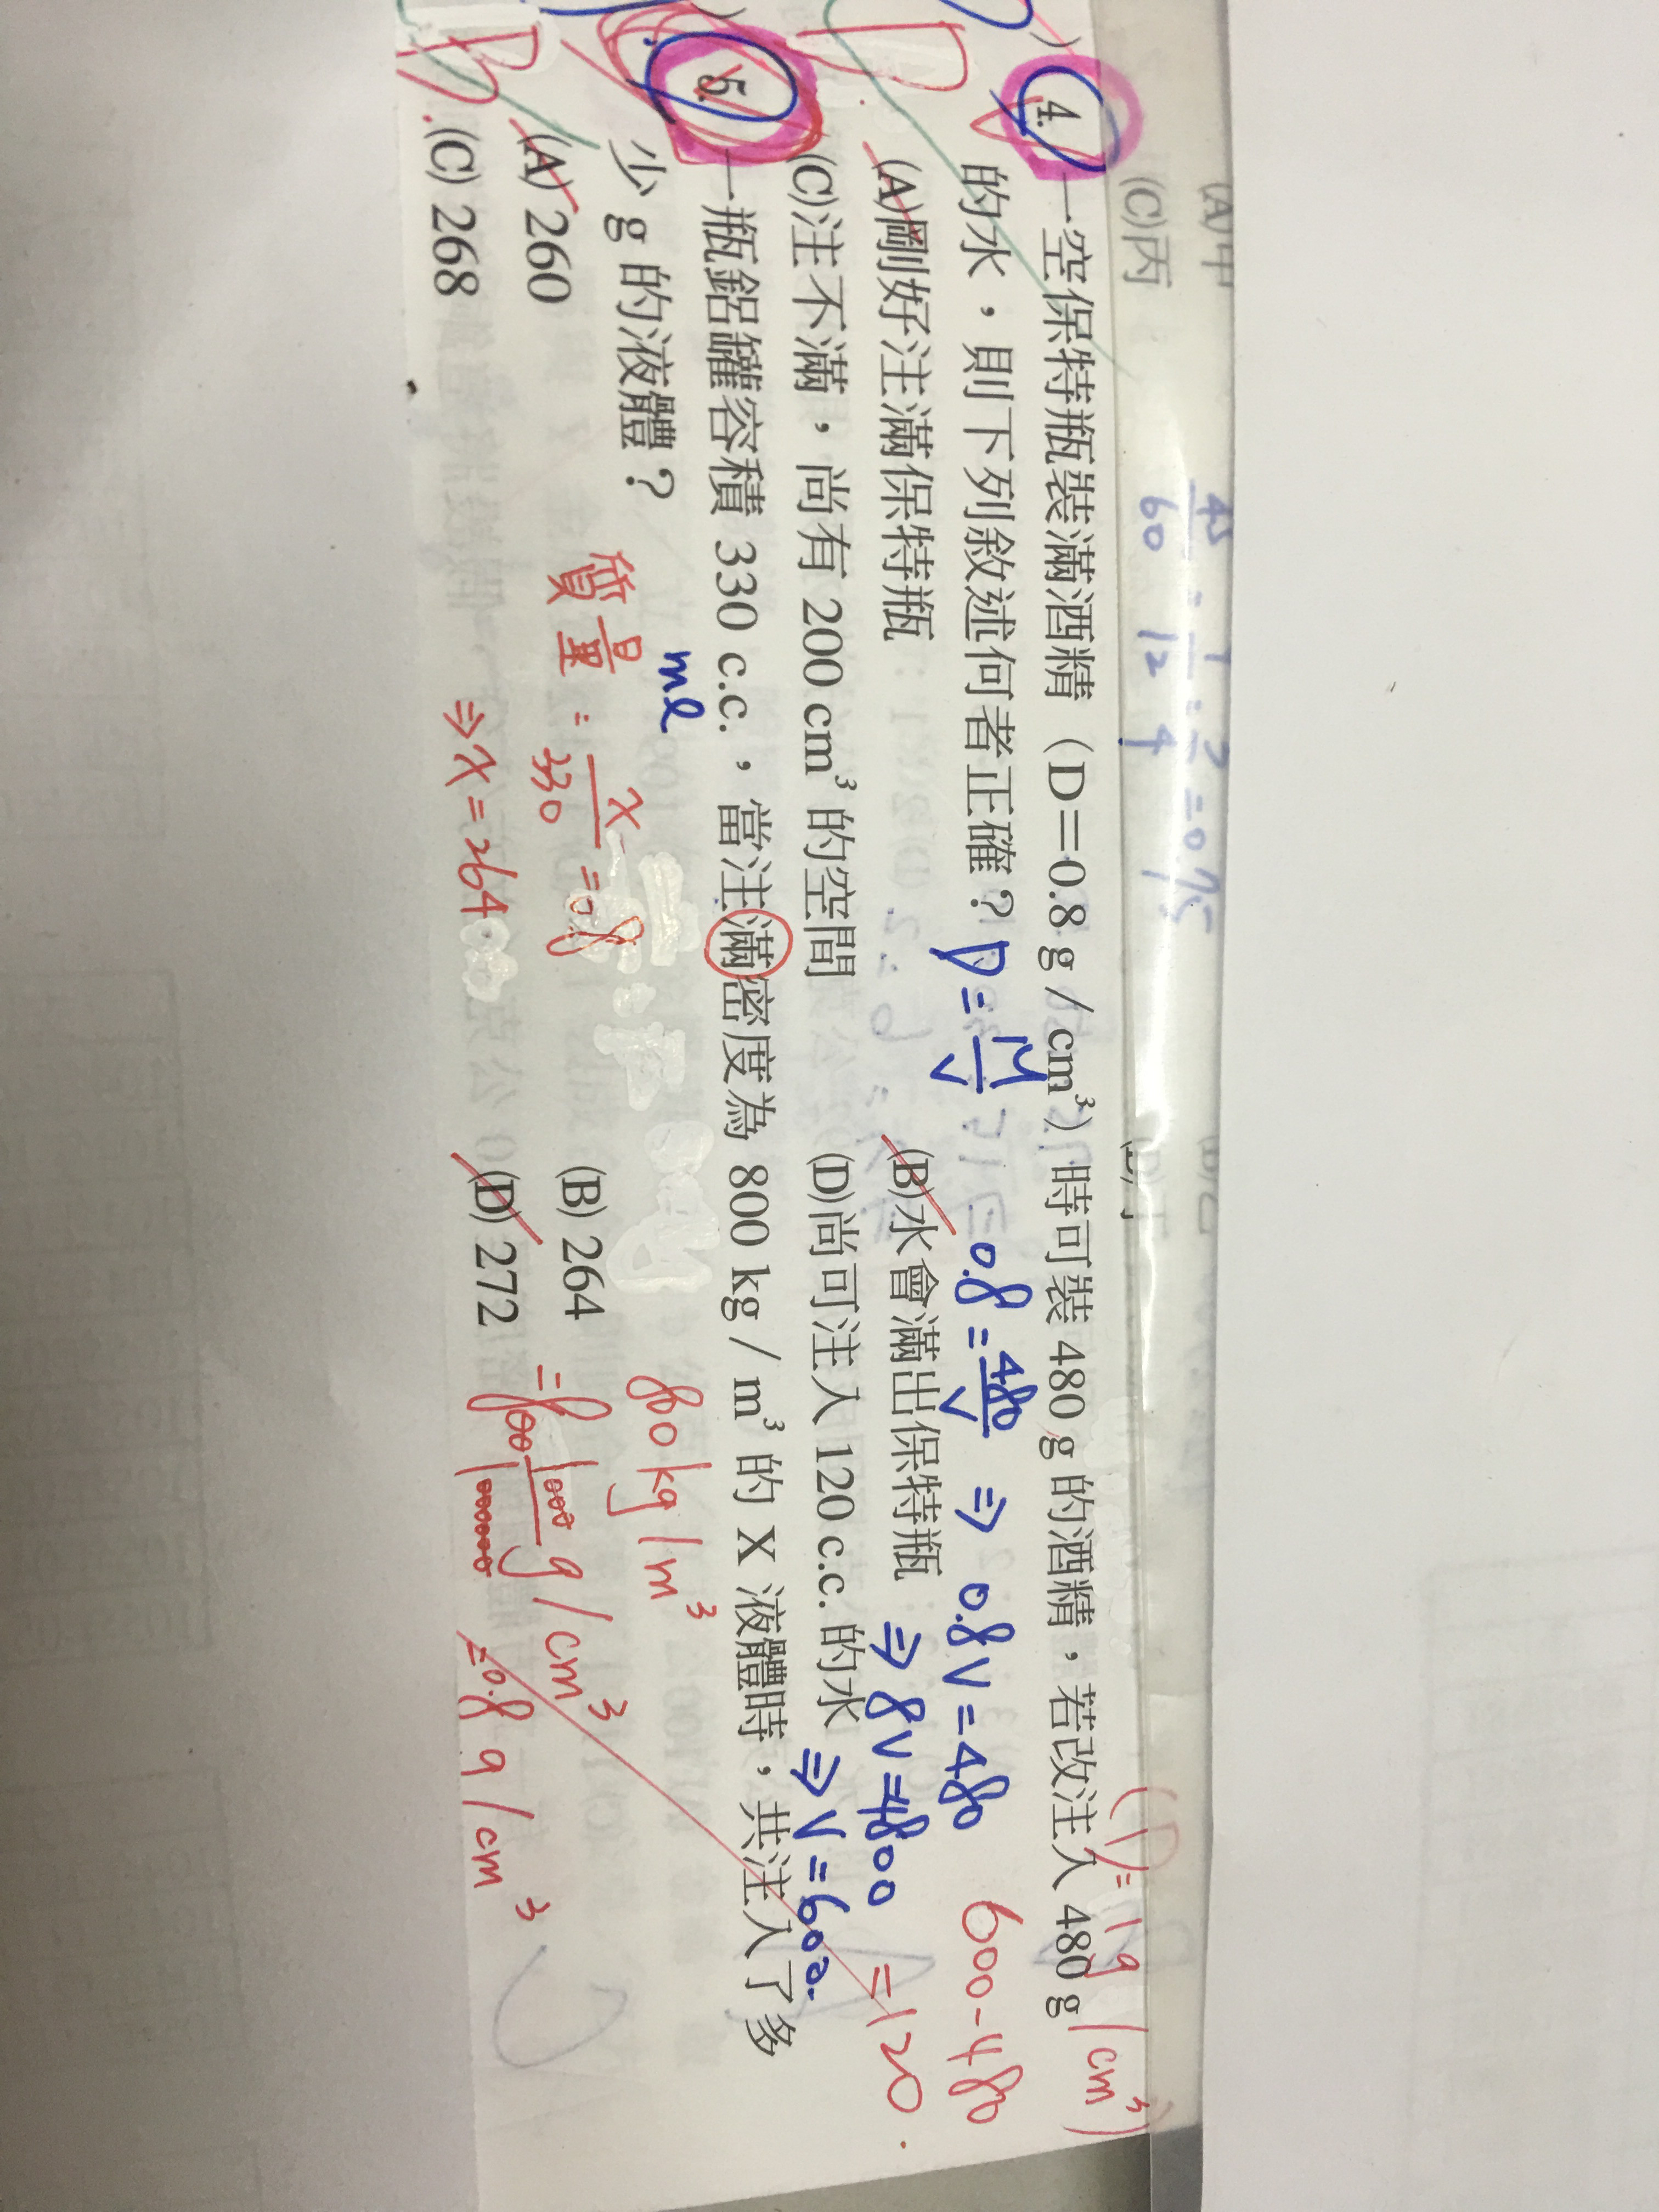 (A)甲
45
60 12 4 = 0.75
(C)丙
(D=1g/cm³)
4. 一空保特瓶裝滿酒精（D=0.8 g / cm³）時可裝 480 g 的酒精，若改注入 480 g
的水，則下列敘述何者正確？ D=M/V 0.8=480/V ⇒ 0.8V=480 600-480
(A)剛好注滿保特瓶 (B)水會滿出保特瓶 ⇒ 8V=4800 =120
(C)注不滿，尚有 200 cm³ 的空間 (D)尚可注入 120 c.c. 的水 ⇒ V=600.
5. 一瓶鋁罐容積 330 c.c.，當注滿密度為 800 kg / m³ 的 X 液體時，共注入了多
ml
少 g 的液體？ 800kg/m³
質量: x/330=0.8
(A) 260 (B) 264 =800 1000/1000000 g/cm³
(C) 268 (D) 272 =0.8 g/cm³
⇒x=264